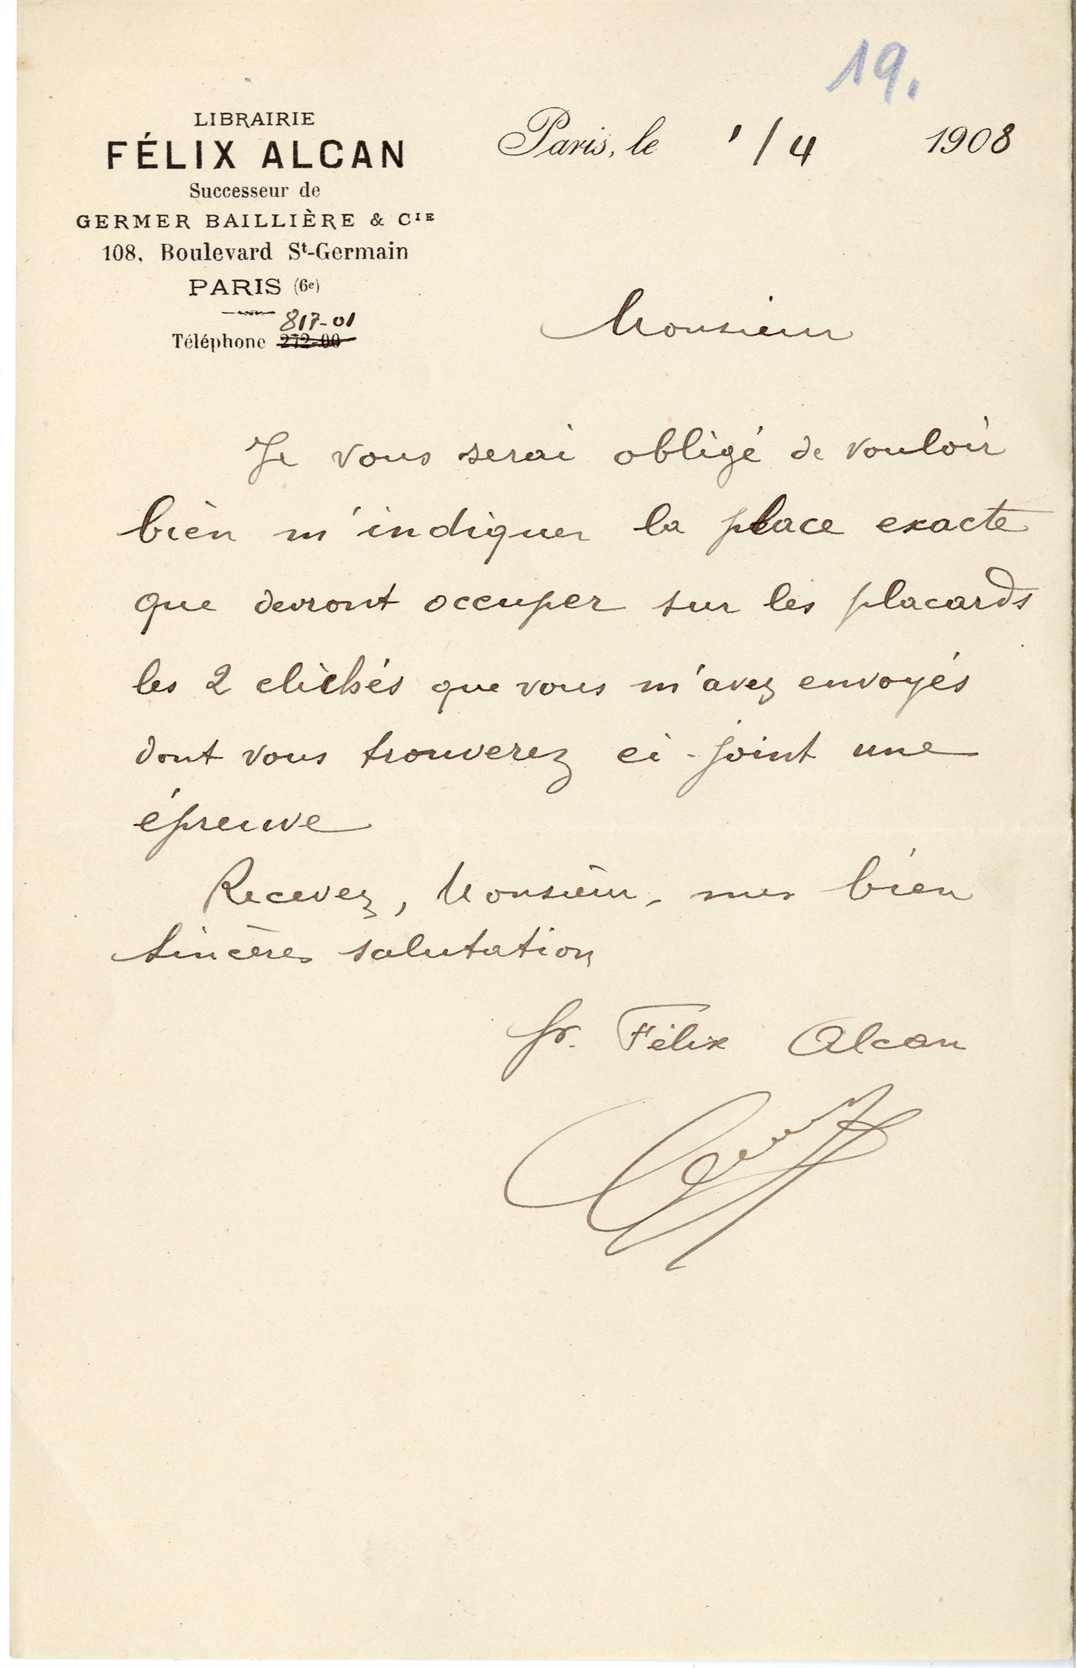 19.
LIBRAIRIE
FÉLIX ALCAN
Successeur de
GERMER BAILLIÈRE & CIE
108, Boulevard St-Germain
PARIS (6e)
817-01
Téléphone 272-00
Paris, le 1/4 1908
Monsieur
Je vous serai obligé de vouloir
bien m'indiquer la place exacte
que devront occuper sur les placards
les 2 clichés que vous m'avez envoyés
dont vous trouverez ci-joint une
épreuve
Recevez, Monsieur, mes bien
sincères salutation
pr. Félix Alcan